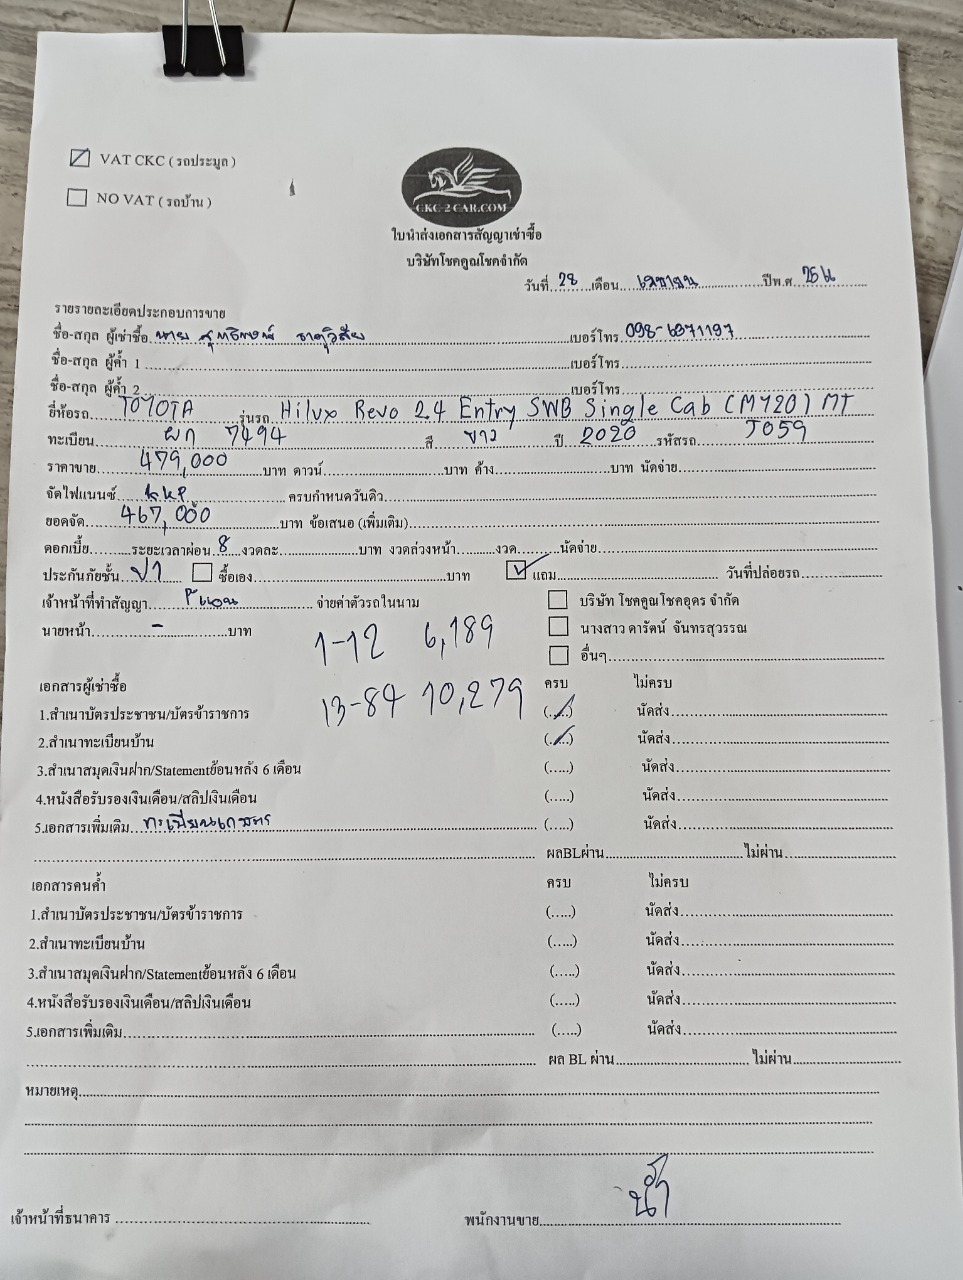 VAT CKC ( รถประมูล )
NO VAT ( รถบ้าน )
CKC 2 CAR.COM
ใบนำส่งเอกสารสัญญาเช่าซื้อ
บริษัทโชคคูณโชคจำกัด
วันที่ 28 เดือน เมษายน ปีพ.ศ.
รายรายละเอียดประกอบการขาย
ชื่อ-สกุล ผู้เช่าซื้อ นาย สุทธิพงษ์ เบอร์โทร 098-6971197
ชื่อ-สกุล ผู้ค้ำ 1 เบอร์โทร
ชื่อ-สกุล ผู้ค้ำ 2 เบอร์โทร
ยี่ห้อรถ TOYOTA รุ่นรถ Hilux Revo 2.4 Entry SWB Single Cab (MY20) MT
ทะเบียน ผก 7494 สี ขาว ปี 2020 รหัสรถ J059
ราคาขาย 479,000 บาท ดาวน์ บาท ค้าง บาท นัดจ่าย
จัดไฟแนนซ์ KKP ครบกำหนดวันคิว
ยอดจัด 467,000 บาท ข้อเสนอ (เพิ่มเติม)
ดอกเบี้ย ระยะเวลาผ่อน 8 งวดละ บาท งวดล่วงหน้า งวด นัดจ่าย
ประกันภัยชั้น ป1 ซื้อเอง บาท แถม วันที่ปล่อยรถ
เจ้าหน้าที่ทำสัญญา จ่ายค่าตัวรถในนาม บริษัท โชคคูณโชคอุดร จำกัด
นายหน้า - บาท นางสาว ดารัตน์ จันทรสุวรรณ
1-12 6,189
อื่นๆ
เอกสารผู้เช่าซื้อ ครบ ไม่ครบ
13-84 10,279
1.สำเนาบัตรประชาชน/บัตรข้าราชการ (...../) นัดส่ง
2.สำเนาทะเบียนบ้าน (...../) นัดส่ง
3.สำเนาสมุดเงินฝาก/Statementย้อนหลัง 6 เดือน (.....) นัดส่ง
4.หนังสือรับรองเงินเดือน/สลิปเงินเดือน (.....) นัดส่ง
5.เอกสารเพิ่มเติม ทะเบียนเกษตร (.....) นัดส่ง
ผลBLผ่าน ไม่ผ่าน
เอกสารคนค้ำ ครบ ไม่ครบ
1.สำเนาบัตรประชาชน/บัตรข้าราชการ (.....) นัดส่ง
2.สำเนาทะเบียนบ้าน (.....) นัดส่ง
3.สำเนาสมุดเงินฝาก/Statementย้อนหลัง 6 เดือน (.....) นัดส่ง
4.หนังสือรับรองเงินเดือน/สลิปเงินเดือน (.....) นัดส่ง
5.เอกสารเพิ่มเติม (.....) นัดส่ง
ผล BL ผ่าน ไม่ผ่าน
หมายเหตุ
เจ้าหน้าที่ธนาคาร พนักงานขาย